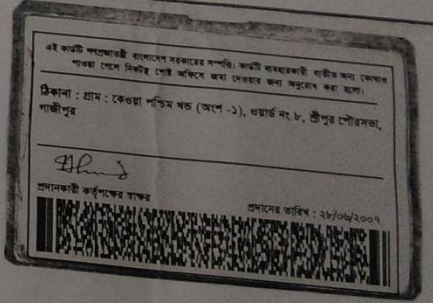 এই কার্ডটি গণপ্রজাতন্ত্রী বাংলাদেশ সরকারের সম্পত্তি। কার্ডটি ব্যবহারকারী ব্যতীত অন্য কোথাও
পাওয়া গেলে নিকটস্থ পোষ্ট অফিসে জমা দেওয়ার জন্য অনুরোধ করা হলো।
ঠিকানা : গ্রাম : কেওয়া পশ্চিম খন্ড (অংশ -১), ওয়ার্ড নং ৮, শ্রীপুর পৌরসভা,
গাজীপুর
প্রদানকারী কর্তৃপক্ষের স্বাক্ষর
প্রদানের তারিখ : ২৮/০৬/২০০৭